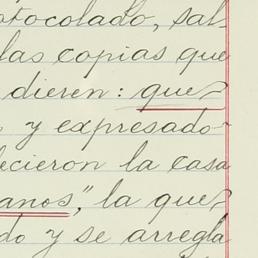 otocolado, sal-
las copias que
dieren: que
y expresado
ecieron la casa
anos," la que
do y se arregla